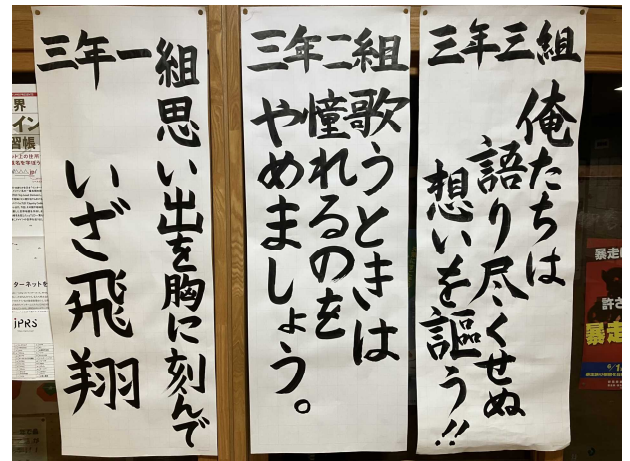 三年一組
思い出を胸に刻んで
いざ飛翔
三年二組
歌うときは
憧れるのを
やめましょう。
三年三組
俺たちは
語り尽くせぬ
想いを謳う!!
界
イン
習帳
ターネットを
JPRS
暴走
許さ
暴走